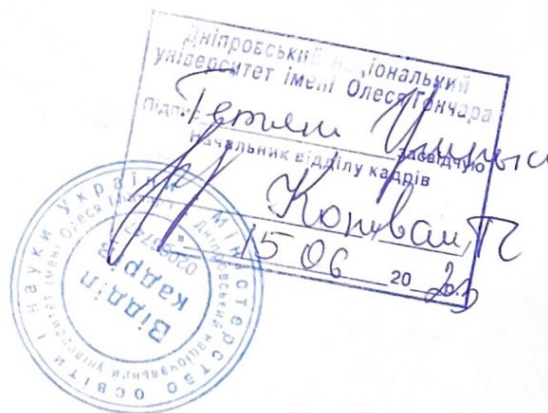 Дніпровський національний
університет імені Олеся Гончара
Підпис Тетяни засвідчую
Начальник відділу кадрів
15 06 2023
Міністерство освіти і науки України
Дніпровський національний університет імені Олеся Гончара
Відділ
кадрів